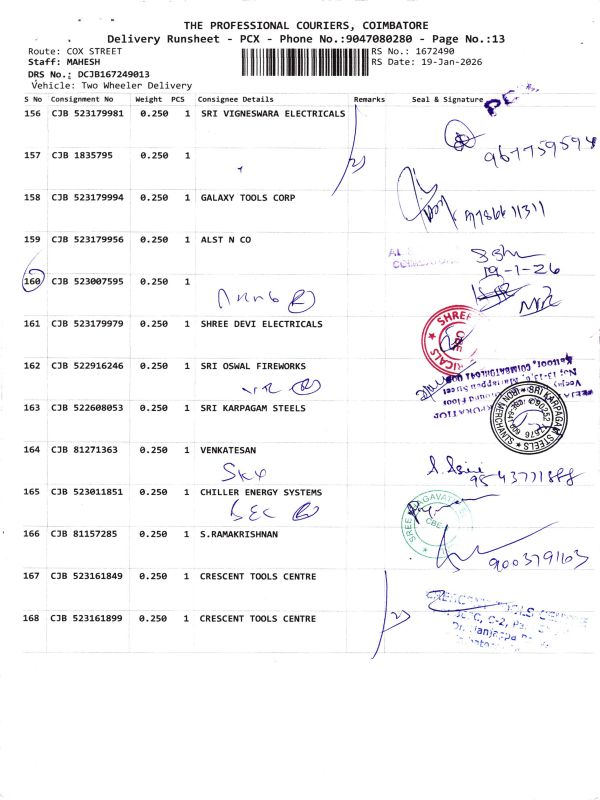 THE PROFESSIONAL COURIERS, COIMBATORE
Delivery Runsheet - PCX - Phone No.:9047080280 - Page No.:13
Route: COX STREET RS No.: 1672490
Staff: MAHESH RS Date: 19-Jan-2026
DRS No.: DCJB167249013
Vehicle: Two Wheeler Delivery
S No Consignment No Weight PCS Consignee Details Remarks Seal & Signature
156 CJB 523179981 0.250 1 SRI VIGNESWARA ELECTRICALS
157 CJB 1835795 0.250 1
158 CJB 523179994 0.250 1 GALAXY TOOLS CORP
159 CJB 523179956 0.250 1 ALST N CO
19-1-26
160 CJB 523007595 0.250 1
161 CJB 523179979 0.250 1 SHREE DEVI ELECTRICALS
162 CJB 522916246 0.250 1 SRI OSWAL FIREWORKS
163 CJB 522608053 0.250 1 SRI KARPAGAM STEELS
SRI KARPAGAM STEELS
164 CJB 81271363 0.250 1 VENKATESAN
165 CJB 523011851 0.250 1 CHILLER ENERGY SYSTEMS
166 CJB 81157285 0.250 1 S.RAMAKRISHNAN
9003791163
167 CJB 523161849 0.250 1 CRESCENT TOOLS CENTRE
168 CJB 523161899 0.250 1 CRESCENT TOOLS CENTRE